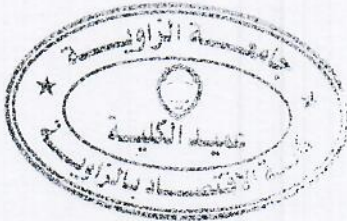 جامعة الزاويـــة
عميد الكليـــة
كلية الاقتصـــاد بالزاويـــة